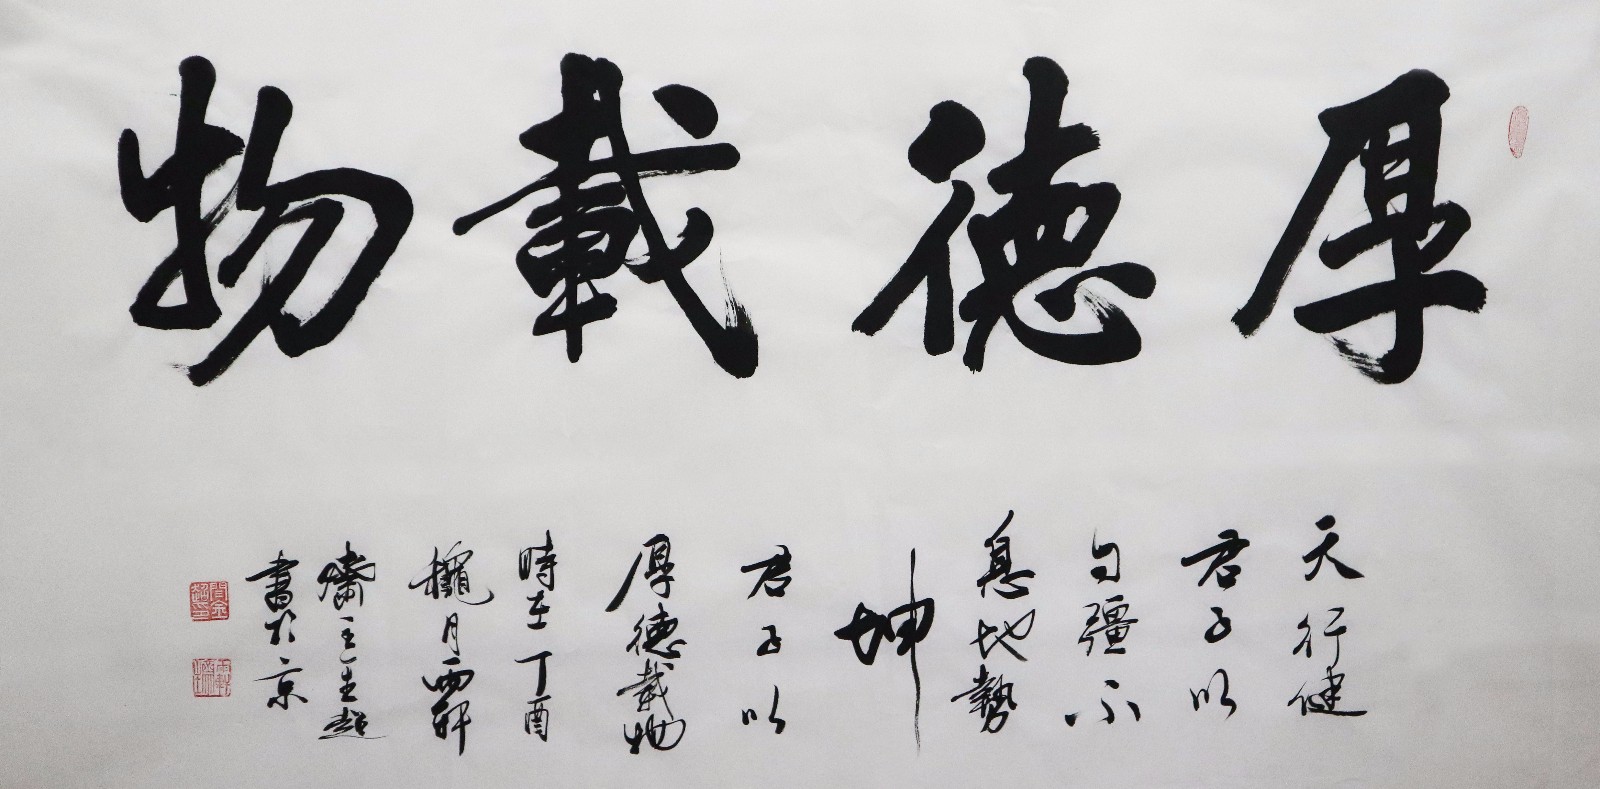 厚德載物
天行健
君子以
自彊不
息地勢
坤
君子以
厚德載物
時在丁酉
月雨軒
齋主玉超
書於京